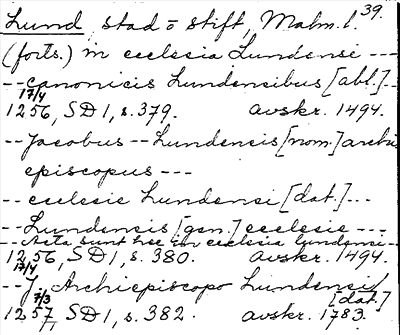 Lund, stad o stift, Malm. l. 39.
(forts.) in ecclesia Lundensi ---
-- canonicis Lundensibus [abl.] --
17/4
1256, SD 1, s. 379. avskr. 1494.
-- Jacobus -- Lundensis [nom.] archi
episcopus ---
-- ecclesie Lundensi [dat.] ---
-- Lundensis [gen.] ecclesie ---
-- Acta sunt hec in ecclesia lundensi --
1256, SD 1, s. 380. avskr. 1494.
17/4
-- J. Archiepiscopo Lundensi
[dat.]
7/3
1257, SD 1, s. 382. avskr. 1783.